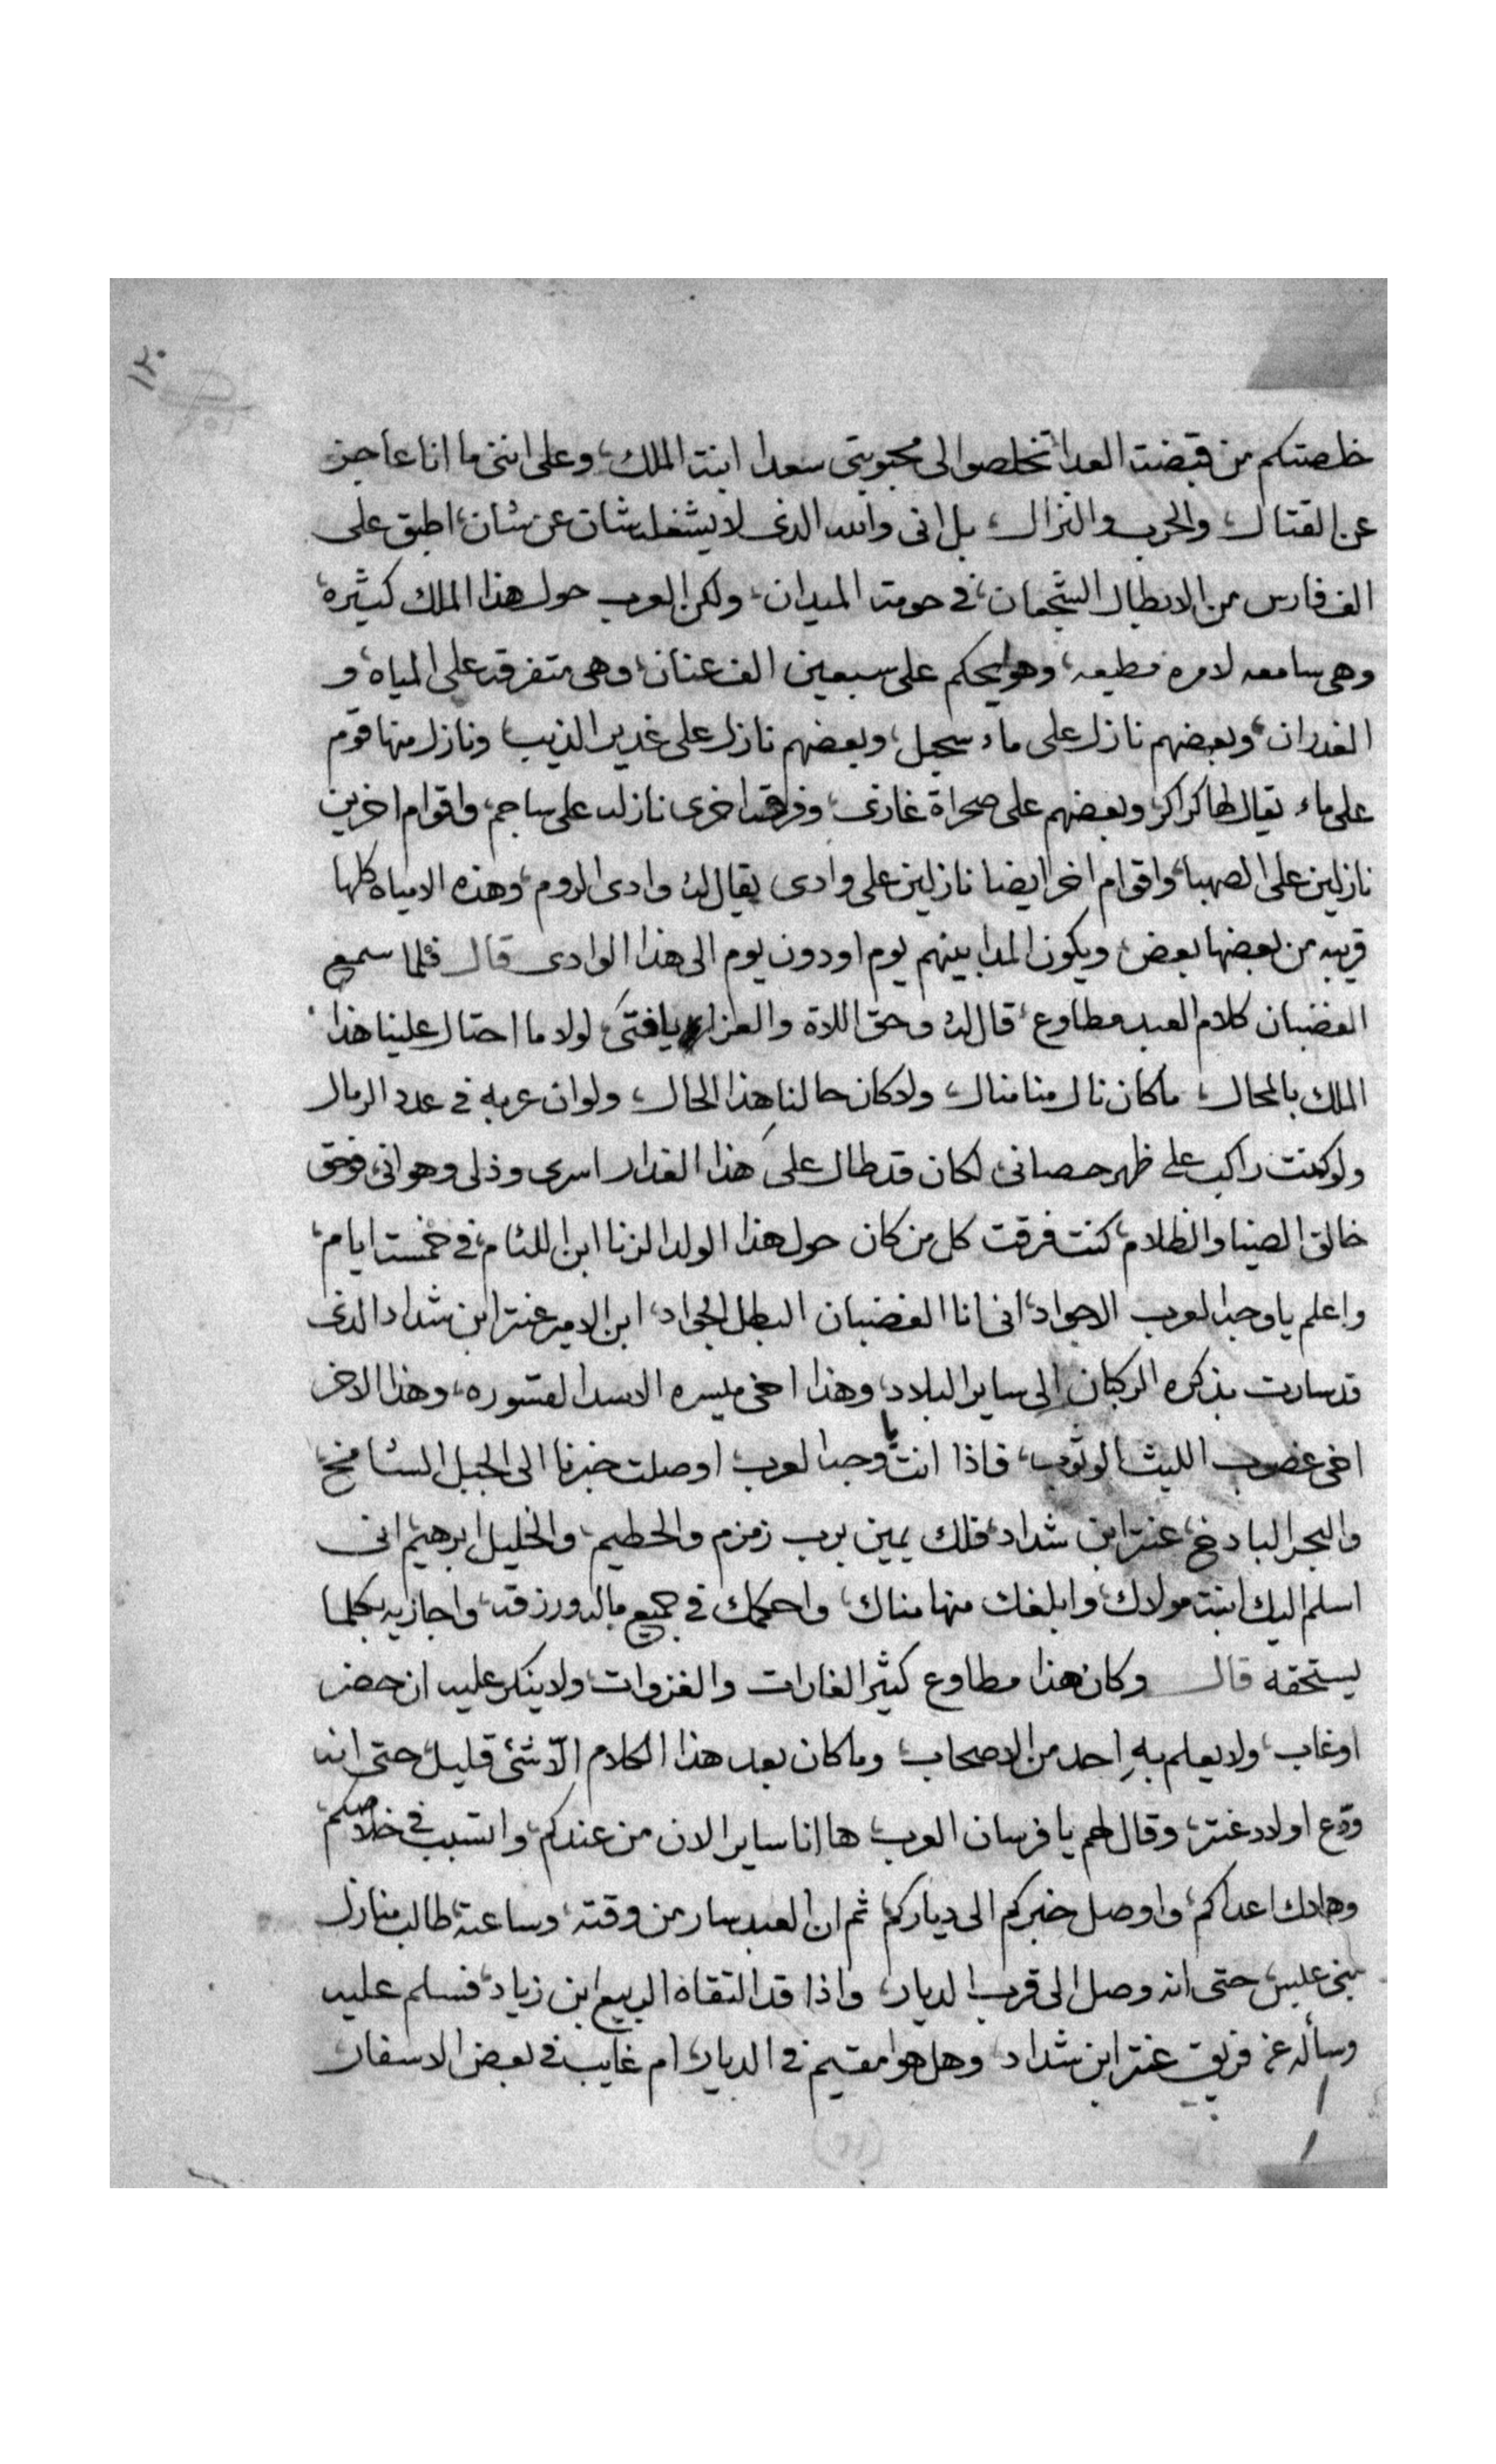 ١٢٠
خلصتكم من قبضت العدا تخلصوا لى محبوبتى سعدا ابنة الملك، وعلى اننى ما انا عاجز
عن القتال، والحرب والنزال، بل انى والله الذى لا يشغله شان عن شان، اطبق على
الف فارس من الابطال الشجعان، فى حومة الميدان، ولكن العرب حول هذا الملك كثيره،
وهى سامعه لامره مطيعه، وهو يحكم على سبعين الف عنان، وهى متفرقه على المياه، و
الغدران، وبعضهم نازل على ماء سجيل، وبعضهم نازل على غدير الذيب ونازل منها قوم
على ماء يقال لها كراكر، وبعضهم على صحراة غازى، وفرقه اخرى نازله على ساجم، واقوام اخرين
نازلين على الصهبا، واقوام اخر ايضا نازلين على وادى يقال له وادى الروم، وهذه الامياه كلها
قريبه من بعضها بعض، ويكون المدا بينهم يوم او دون يوم الى هذا الوادى قال فلما سمع
الغضبان كلام العبد مطاوع، قال له وحق اللاة والعزا يا فتى، لولا ما احتال علينا هذا
الملك بالمحال، ما كان نال منا منال، ولا كان حالنا هذا الحال، ولو ان عربه فى عدد الرمال
ولو كنت راكب على ظهر حصانى، لكان قد طال على هذا الغدار اسرى وذلى وهوانى، فوحق
خالق الضيا والظلام، كنت فرقت كل من كان حول هذا الولد الزنا ابن اللئام، فى خمست ايام،
واعلم يا وجه العرب الاجواد، انى انا الغضبان البطل الجواد، ابن الامير عنتر ابن شداد الذى
قد سارت بذكره الركبان الى ساير البلاد، وهذا اخى ميسره الاسد القسوره، وهذا الاخر
اخى غصوب الليث الوثوب، فاذا انت يا وجه العرب اوصلت خبرنا الى الجبل الشامخ
والبحر البادخ، عنتر ابن شداد، فلك يمين برب زمزم والحطيم، والخليل ابرهيم، انى
اسلم اليك ابنة مولاك، وابلغك منها مناك، واحكمك فى جميع ماله ورزقه، واجازيه بكلما
يستحقه قال وكان هذا مطاوع كثير الغارات والغزوات، ولا ينكر عليه ان حضر
او غاب، ولا يعلم به احد من الاصحاب، وما كان بعد هذا الكلام الّا شئى قليل، حتى انه
ودّع اولاد عنتر، وقال لهم يا فرسان العرب، ها انا ساير الان من عندكم، واتسبب فى خلاصكم،
وهلاك اعداكم، واوصل خبركم الى دياركم، ثم ان العبد سار من وقته، وساعته، طالب منازل
بنى عبس، حتى انه وصل الى قرب الديار، واذا قد التقاه الربيع ابن زياد، فسلم عليه
وسأله عن فريق عنتر ابن شداد، وهل هوا مقيم فى الديار، ام غايب فى بعض الاسفار،